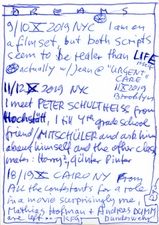 DREAMS
9/10 X 2019 NYC I am on
a film set, but both scripts
seem to be realer than LIFE
@actually w/Jean@ "URGENT CARE"
11/12 X 2019 BROOKLYN
I meet PETER SCHULTHEISS from
Hochstätt, 1 4th grade school
friend/MITSCHÜLER and ask him
about himself and the other class
mates: Horny?, Günter Pintar
18/19 X CAIRO NY From
All the contestants for a role
in a movie surprisingly me,
Mathias Hoffman + Andreas DUMM
are left..